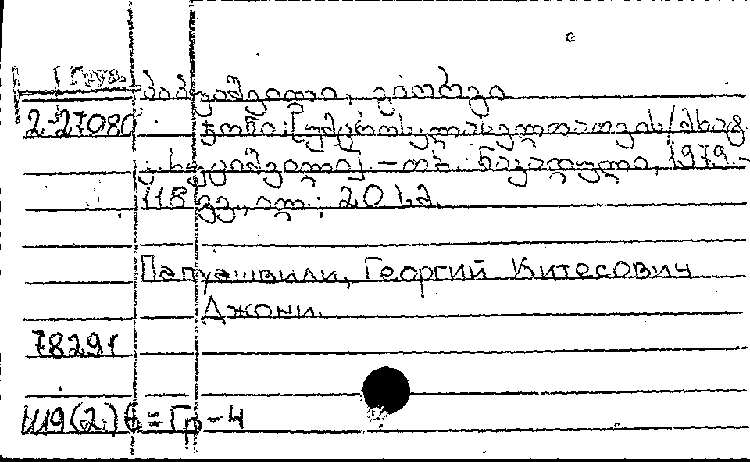 Груз. პაპუაშვილი, გიორგი
2-27080 ჯონი: [უმცროსკლასელთათვის/მხატ.
– თბ. ნაკადული, 1979. –
118 გვ., ილ.; 20 სმ.
Папуашвили, Георгий Китесович
Джони.
78291
Ш9(2)6=Гр-4